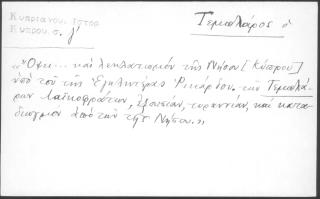 Κυπριανού. Ιστορ
Κύπρου. σ. γ'
Τεμπλάρος ὁ
"Ὄψι... καὶ λεηλατισμὸν τῆς Νήσου [Κύπρου]
ὑπὸ τοῦ τῆς Ἐγκλιτέρας Ρικάρδου. τῶν Τεμπλά-
ρων Λαϊκοφρατῶν, ἐξουσίαν, τυραννίαν, καὶ κατα-
διωγμὸν ἀπὸ τῶν τῆς Νήσου.„